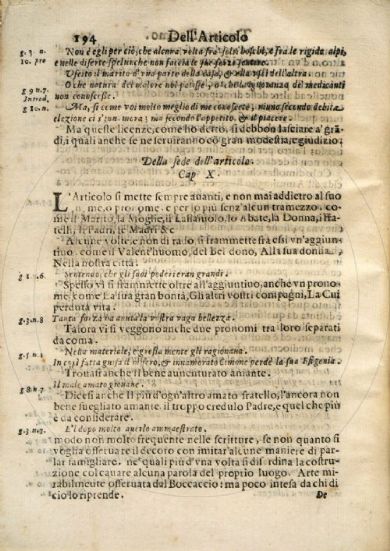 194 Dell'Articolo
g.3 n. Non è egli per ciò, che alcuna volta fra' folti boschi, e fra le rigide alpi,
10. pre e nelle diserte spelunche non faccia le sue forze sentire.
Uscito il marito d'una parte della casa, & ella uscì dell'altra.
g 9 n.7 O che natura del malore nol patisse, o la ignoranza de' medicanti
Introd. non conoscesse.
g 10.n. Ma, se come voi molto meglio di me conoscete, niuno secondo debita
elezione ci s'innamora; ma secondo l'appetito, & il piacere.
Ma queste licenze, come ho detto, si debbon lasciare a' grã
di, i quali anche se ne seruirono cõ gran modestia, e giudizio;
Della sede dell'articolo.
Cap X.
L'Articolo si mette sempre auanti, e non mai addietro al suo
nome, o pronome: e per lo più senz'alcun tramezzo: co
me il Marito, la Moglie, il Lastaiuolo, lo Abate, la Donna, i Fra
telli, le Madri &c
Alcune volte, e non di rado, si frammette fra essi vn'aggiun
to come il Valent'huomo, del bel dono, Alla sua donna.
Nella nostra città:
g 1 n.6. Sentendo, che gli suoi poderi eran grandi.
Spesso vi si frammette oltre all'aggiuntino, anche vn prono
me, come La tua gran bontà, Gli altri vostri compagni, La Cui
perduta vita:
g 3.n.8 Tanta forza ha auuta la vostra vaga bellezza.
Talora vi si veggono anche due pronomi tra loro separati
da coma.
g 5 n 1. Nella materiale, e grossa mente gli ragionaua.
In essi fatta guisa il misero, & innamorato Cimone perdè la sua Efigenia.
Trouasi anche il bene auuenturato amante.
g 8 n 7. Il male amato giouane.
Dicesi anche Il più d'ogn'altro amato fratello, l'ancora non
bene suegliato amante il troppo credulo Padre, e quel che più
è da considerare.
g.3 n.7. E'l dopo molto auerlo ammaestrato.
modo non molto frequente nelle scritture, se non quanto si
voglia osseruare il decoro con imitar alcune maniere di par
lar famigliare. ne' quali più d'vna volta si disordina la costru
zione col cauare alcuna parola del proprio luogo. Arte mi-
rabilmente osseruata dal Boccaccio: ma poco intesa da chi di
ciò lo riprende.
De